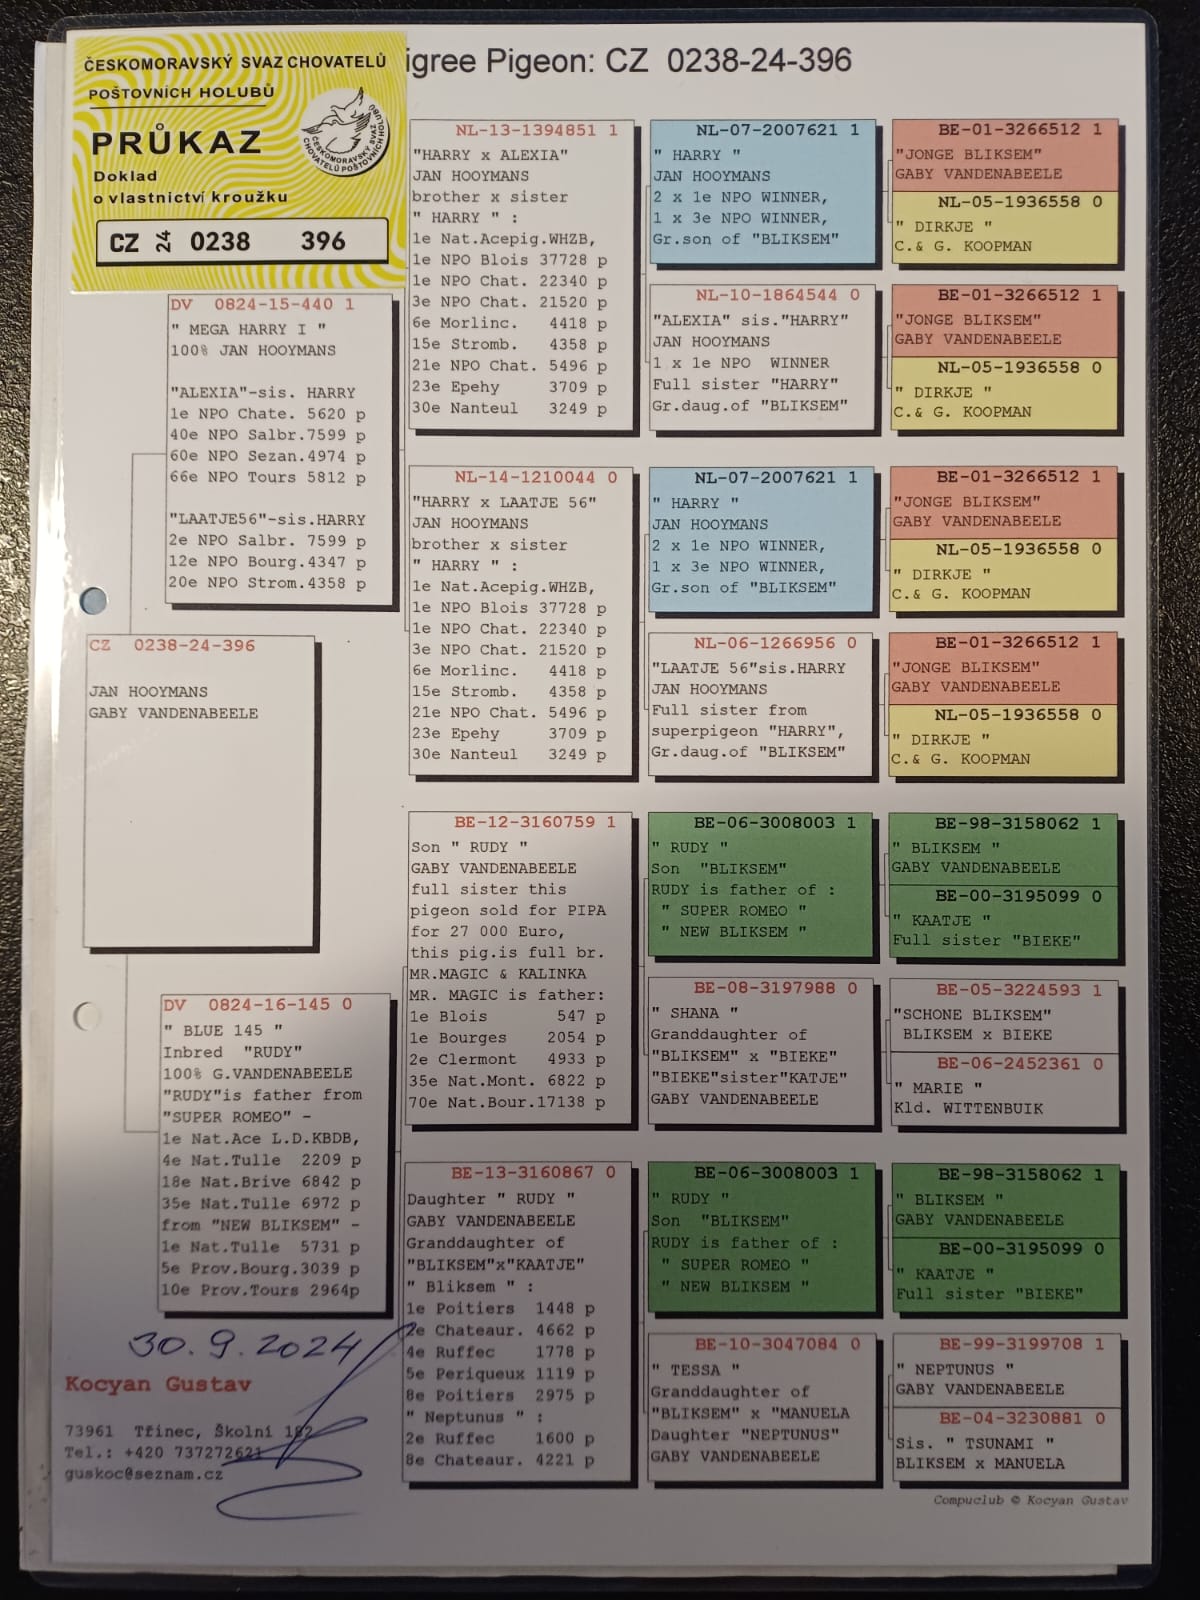 ČESKOMORAVSKÝ SVAZ CHOVATELŮ
POŠTOVNÍCH HOLUBŮ
PRŮKAZ
Doklad
o vlastnictví kroužku
CZ 24 0238 396
ČESKOMORAVSKÝ SVAZ
CHOVATELŮ POŠTOVNÍCH HOLUBŮ
igree Pigeon: CZ 0238-24-396
DV 0824-15-440 1
" MEGA HARRY I "
100% JAN HOOYMANS
"ALEXIA"-sis. HARRY
1e NPO Chate. 5620 p
40e NPO Salbr.7599 p
60e NPO Sezan.4974 p
66e NPO Tours 5812 p
"LAATJE56"-sis.HARRY
2e NPO Salbr. 7599 p
12e NPO Bourg.4347 p
20e NPO Strom.4358 p
CZ 0238-24-396
JAN HOOYMANS
GABY VANDENABEELE
DV 0824-16-145 0
" BLUE 145 "
Inbred "RUDY"
100% G.VANDENABEELE
"RUDY"is father from
"SUPER ROMEO" -
1e Nat.Ace L.D.KBDB,
4e Nat.Tulle 2209 p
18e Nat.Brive 6842 p
35e Nat.Tulle 6972 p
from "NEW BLIKSEM" -
1e Nat.Tulle 5731 p
5e Prov.Bourg.3039 p
10e Prov.Tours 2964p
30.9.2024
Kocyan Gustav
73961 Třinec, Školní 182
Tel.: +420 737272621
guskoc@seznam.cz
NL-13-1394851 1
"HARRY x ALEXIA"
JAN HOOYMANS
brother x sister
" HARRY " :
1e Nat.Acepig.WHZB,
1e NPO Blois 37728 p
1e NPO Chat. 22340 p
3e NPO Chat. 21520 p
6e Morlinc. 4418 p
15e Stromb. 4358 p
21e NPO Chat. 5496 p
23e Epehy 3709 p
30e Nanteul 3249 p
NL-14-1210044 0
"HARRY x LAATJE 56"
JAN HOOYMANS
brother x sister
" HARRY " :
1e Nat.Acepig.WHZB,
1e NPO Blois 37728 p
1e NPO Chat. 22340 p
3e NPO Chat. 21520 p
6e Morlinc. 4418 p
15e Stromb. 4358 p
21e NPO Chat. 5496 p
23e Epehy 3709 p
30e Nanteul 3249 p
BE-12-3160759 1
Son " RUDY "
GABY VANDENABEELE
full sister this
pigeon sold for PIPA
for 27 000 Euro,
this pig.is full br.
MR.MAGIC & KALINKA
MR. MAGIC is father:
1e Blois 547 p
1e Bourges 2054 p
2e Clermont 4933 p
35e Nat.Mont. 6822 p
70e Nat.Bour.17138 p
BE-13-3160867 0
Daughter " RUDY "
GABY VANDENABEELE
Granddaughter of
"BLIKSEM"x"KAATJE"
" Bliksem " :
1e Poitiers 1448 p
2e Chateaur. 4662 p
4e Ruffec 1778 p
5e Periqueux 1119 p
8e Poitiers 2975 p
" Neptunus " :
2e Ruffec 1600 p
8e Chateaur. 4221 p
NL-07-2007621 1
" HARRY "
JAN HOOYMANS
2 x 1e NPO WINNER,
1 x 3e NPO WINNER,
Gr.son of "BLIKSEM"
NL-10-1864544 0
"ALEXIA" sis."HARRY"
JAN HOOYMANS
1 x 1e NPO WINNER
Full sister "HARRY"
Gr.daug.of "BLIKSEM"
NL-07-2007621 1
" HARRY "
JAN HOOYMANS
2 x 1e NPO WINNER,
1 x 3e NPO WINNER,
Gr.son of "BLIKSEM"
NL-06-1266956 0
"LAATJE 56"sis.HARRY
JAN HOOYMANS
Full sister from
superpigeon "HARRY",
Gr.daug.of "BLIKSEM"
BE-06-3008003 1
" RUDY "
Son "BLIKSEM"
RUDY is father of :
" SUPER ROMEO "
" NEW BLIKSEM "
BE-08-3197988 0
" SHANA "
Granddaughter of
"BLIKSEM" x "BIEKE"
"BIEKE"sister"KATJE"
GABY VANDENABEELE
BE-06-3008003 1
" RUDY "
Son "BLIKSEM"
RUDY is father of :
" SUPER ROMEO "
" NEW BLIKSEM "
BE-10-3047084 0
" TESSA "
Granddaughter of
"BLIKSEM" x "MANUELA
Daughter "NEPTUNUS"
GABY VANDENABEELE
BE-01-3266512 1
"JONGE BLIKSEM"
GABY VANDENABEELE
NL-05-1936558 0
" DIRKJE "
C.& G. KOOPMAN
BE-01-3266512 1
"JONGE BLIKSEM"
GABY VANDENABEELE
NL-05-1936558 0
" DIRKJE "
C.& G. KOOPMAN
BE-01-3266512 1
"JONGE BLIKSEM"
GABY VANDENABEELE
NL-05-1936558 0
" DIRKJE "
C.& G. KOOPMAN
BE-01-3266512 1
"JONGE BLIKSEM"
GABY VANDENABEELE
NL-05-1936558 0
" DIRKJE "
C.& G. KOOPMAN
BE-98-3158062 1
" BLIKSEM "
GABY VANDENABEELE
BE-00-3195099 0
" KAATJE "
Full sister "BIEKE"
BE-05-3224593 1
"SCHONE BLIKSEM"
BLIKSEM x BIEKE
BE-06-2452361 0
" MARIE "
Kld. WITTENBUIK
BE-98-3158062 1
" BLIKSEM "
GABY VANDENABEELE
BE-00-3195099 0
" KAATJE "
Full sister "BIEKE"
BE-99-3199708 1
" NEPTUNUS "
GABY VANDENABEELE
BE-04-3230881 0
Sis. " TSUNAMI "
BLIKSEM x MANUELA
Compuclub © Kocyan Gustav